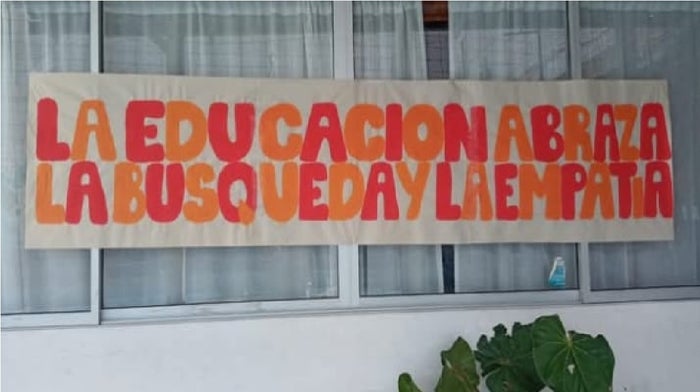 LA EDUCACION ABRAZA
LA BUSQUEDA Y LA EMPATIA